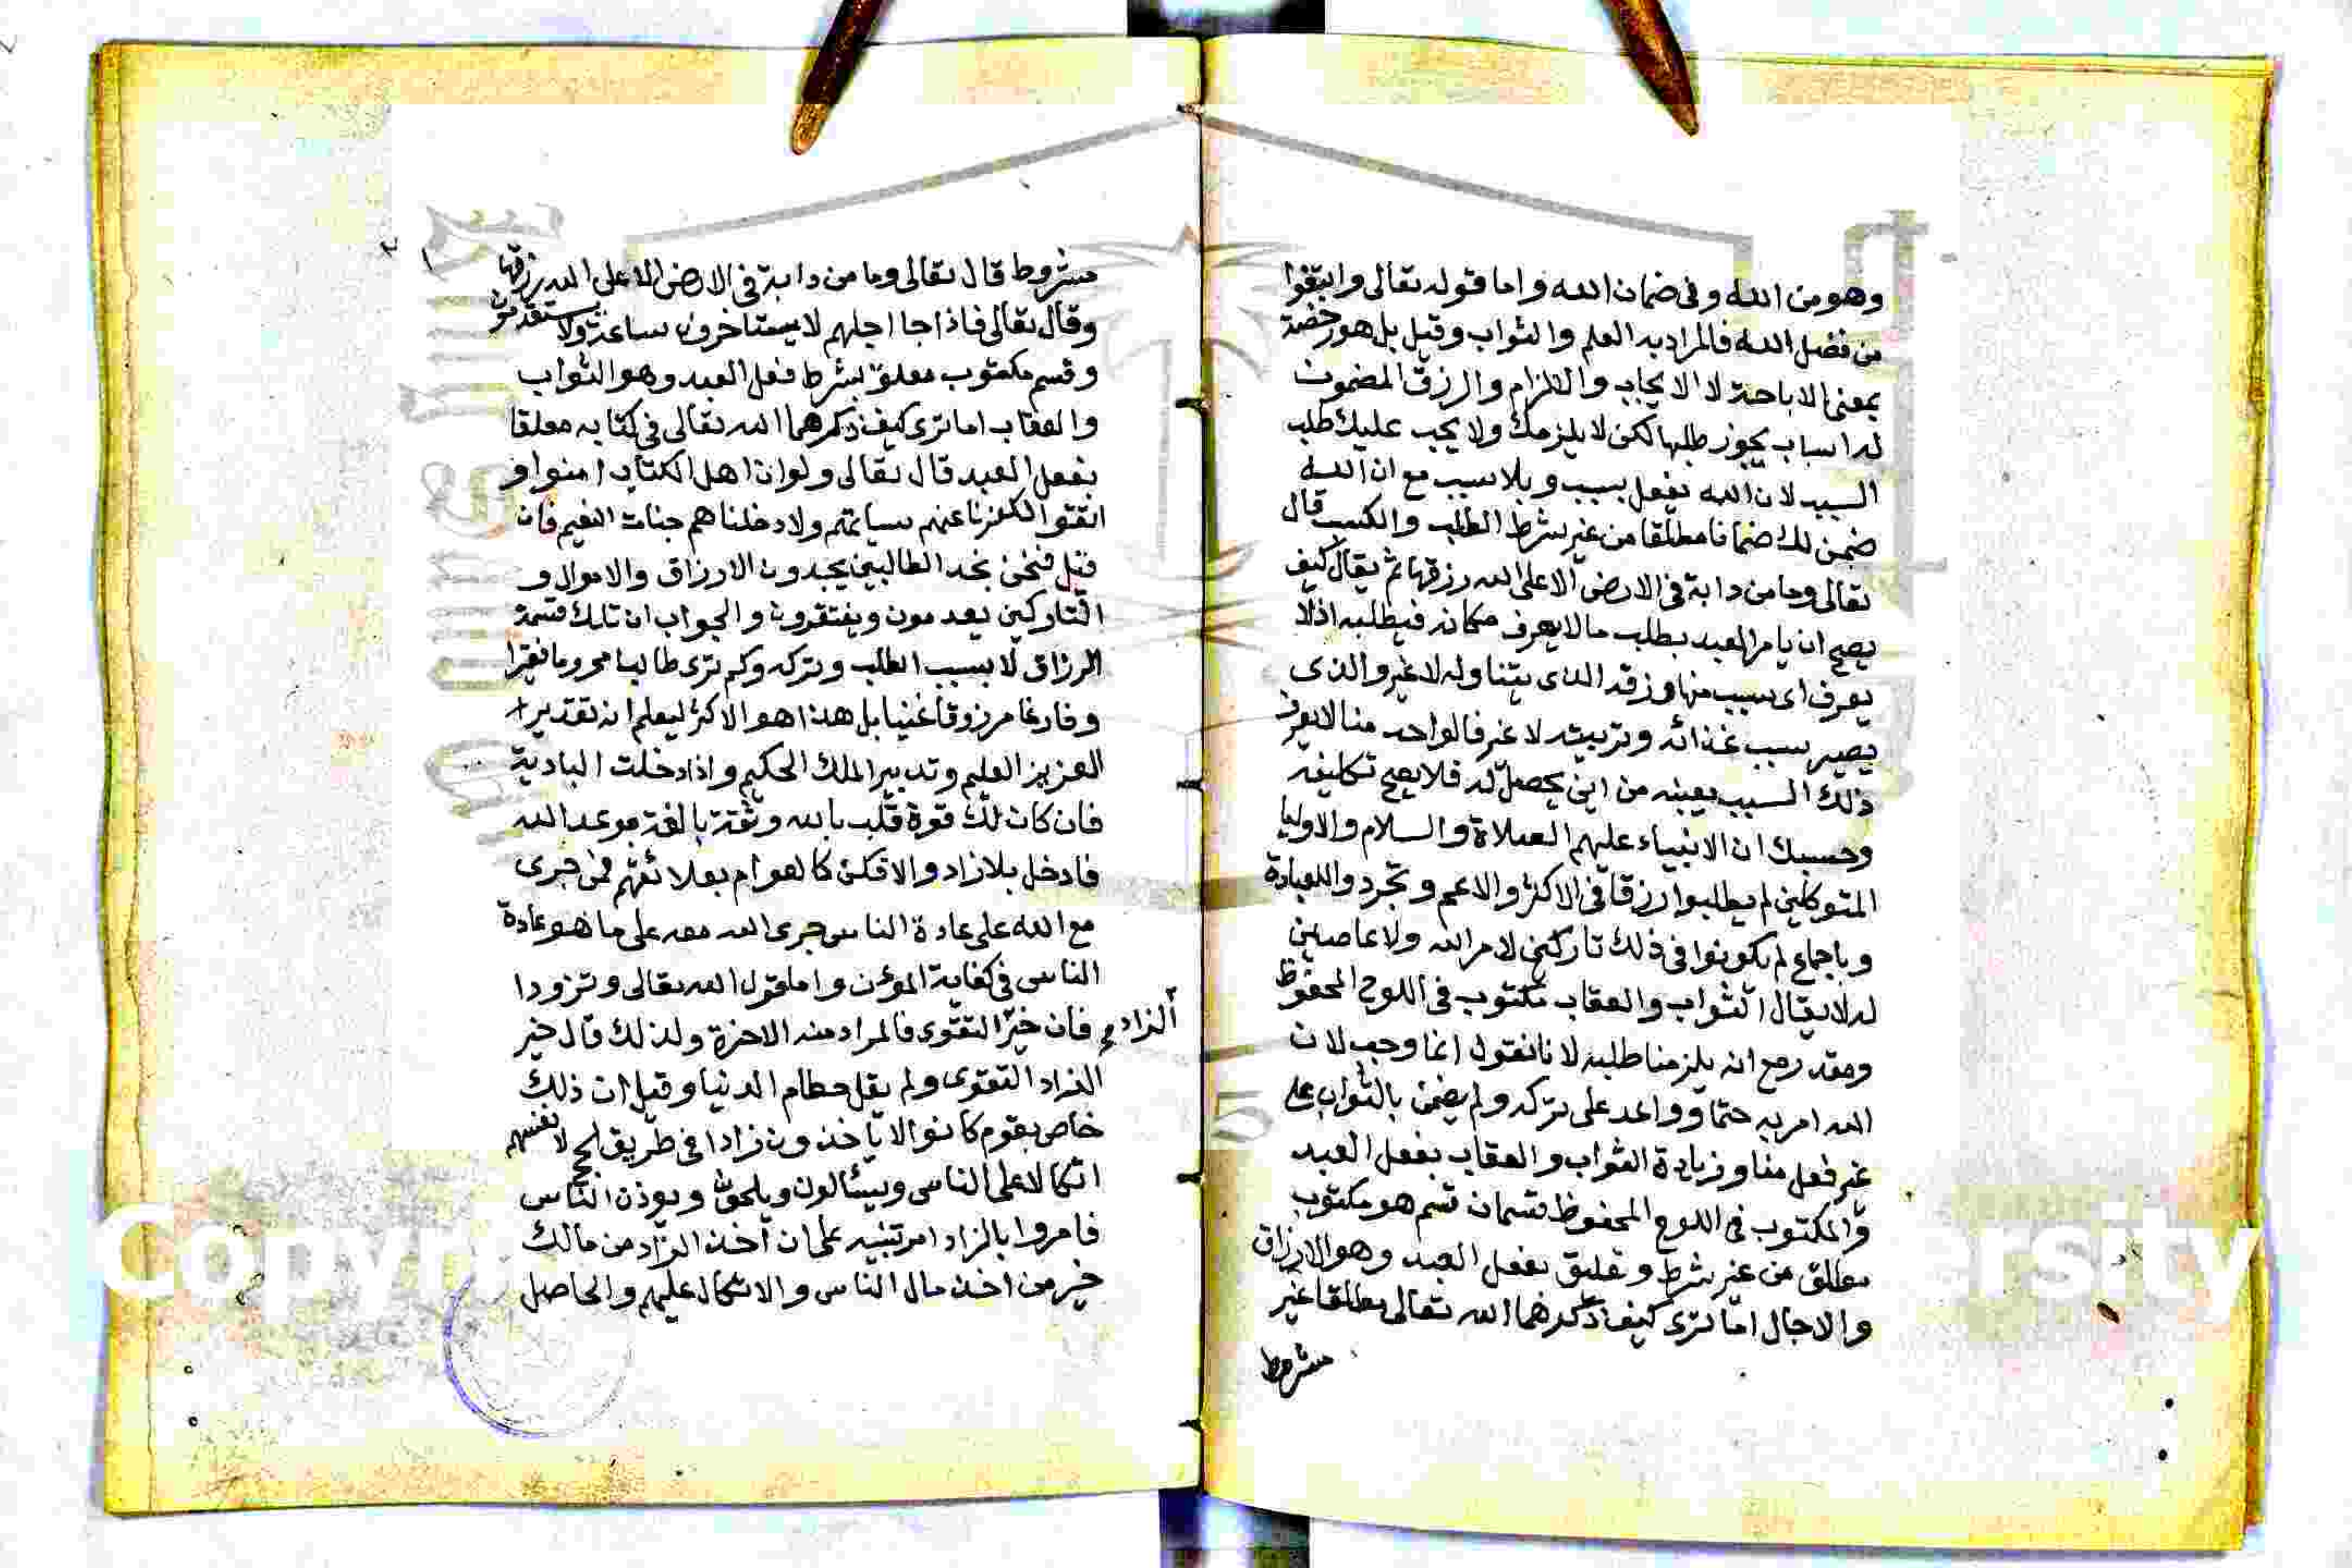 وهو من الله وفى ضمان الله واما قوله تعالى وابتغوا
من فضل الله فالمراد به العلم والثواب وقيل بل هو رخصة
بمعنى الاباحة لا الايجاب والالزام والرزق المضمون
له اسباب يجوز طلبها لكن لا يلزمك ولا يجب عليك طلب
السبب لان الله يفعل بسبب وبلا سبب مع ان الله
ضمن لك ضمانا مطلقا من غير شرط الطلب والكسب قال
تعالى وما من دابة فى الارض الا على الله رزقها ثم يقال كيف
يصح ان يامر العبد بطلب ما لا يعرف مكانه فيطلبه اذ لا
يعرف اى سبب منها ورزقه الذى يتناوله لا غير والذى
يصير سبب غذائه وتربيته لا غير فالواحد منا لا يعرف
ذلك السبب بعينه من اين يحصل له فلا يصح تكليفه
وحسبك ان الانبياء عليهم الصلاة والسلام والاوليا
المتوكلين لم يطلبوا رزقا فى الاكثر والاعم وتجردوا للعبادة
وباجماع لم يكونوا فى ذلك تاركين لامر الله ولا عاصين
له لا يقال الثواب والعقاب مكتوب فى اللوح المحفوظ
ومقدر مع انه يلزمنا طلبه لانا نقول انما وجب لان
الله امر به حتما وواعد على تركه ولم يضمن بالثواب على
غير فعل منا وزيادة الثواب والعقاب بفعل العبد
والمكتوب فى اللوح المحفوظ قسمان قسم هو مكتوب
مطلق من غير شرط وتعليق بفعل العبد وهو الارزاق
والاجال اما ترى كيف ذكرهما الله تعالى مطلقا غير
مشروط
مشروط قال تعالى وما من دابة فى الارض الا على الله رزقها
وقال تعالى فاذا جا اجلهم لا يستاخرون ساعة ولا يستقدمون
وقسم مكتوب معلق بشرط فعل العبد وهو الثواب
والعقاب اما ترى كيف ذكرهما الله تعالى فى كتابه معلقا
بفعل العبد قال تعالى ولو ان اهل الكتاب امنوا و
اتقوا لكفرنا عنهم سياتهم ولادخلناهم جنات النعيم فان
قيل فنحن نجد الطالبين يجدون الارزاق والاموال و
التاركين يعدمون ويفتقرون والجواب ان تلك قسمة
الرزاق لا بسبب الطلب وتركه وكم ترى طالبا محروما فقيرا
وفارغا مرزوقا غنيا بل هذا هو الاكثر ليعلم انه تقدير
العزيز العليم وتدبير الملك الحكيم واذا دخلت البادية
فان كان لك قوة قلب بالله وثقة بالغة بموعد الله
فادخل بلا زاد والا فكن كالعوام بعلائقهم فمن جرى
مع الله على عادة الناس جرى الله معه على ما هو عادة
الناس فى كفاية المؤن واما قول الله تعالى وتزودا
فان خير الزاد التقوى فالمراد منه الاخرة ولذلك قال خير
الزاد التقوى ولم يقل حطام الدنيا وقيل ان ذلك
خاص بقوم كانوا لا ياخذون زادا فى طريق الحج لانفسهم
اتكالا على الناس ويسئالون ويلحون ويوذن الناس
فامروا بالزاد امر تنبيه على ان أخذ الزاد من مالك
خير من اخذ مال الناس والاتكال عليهم والحاصل